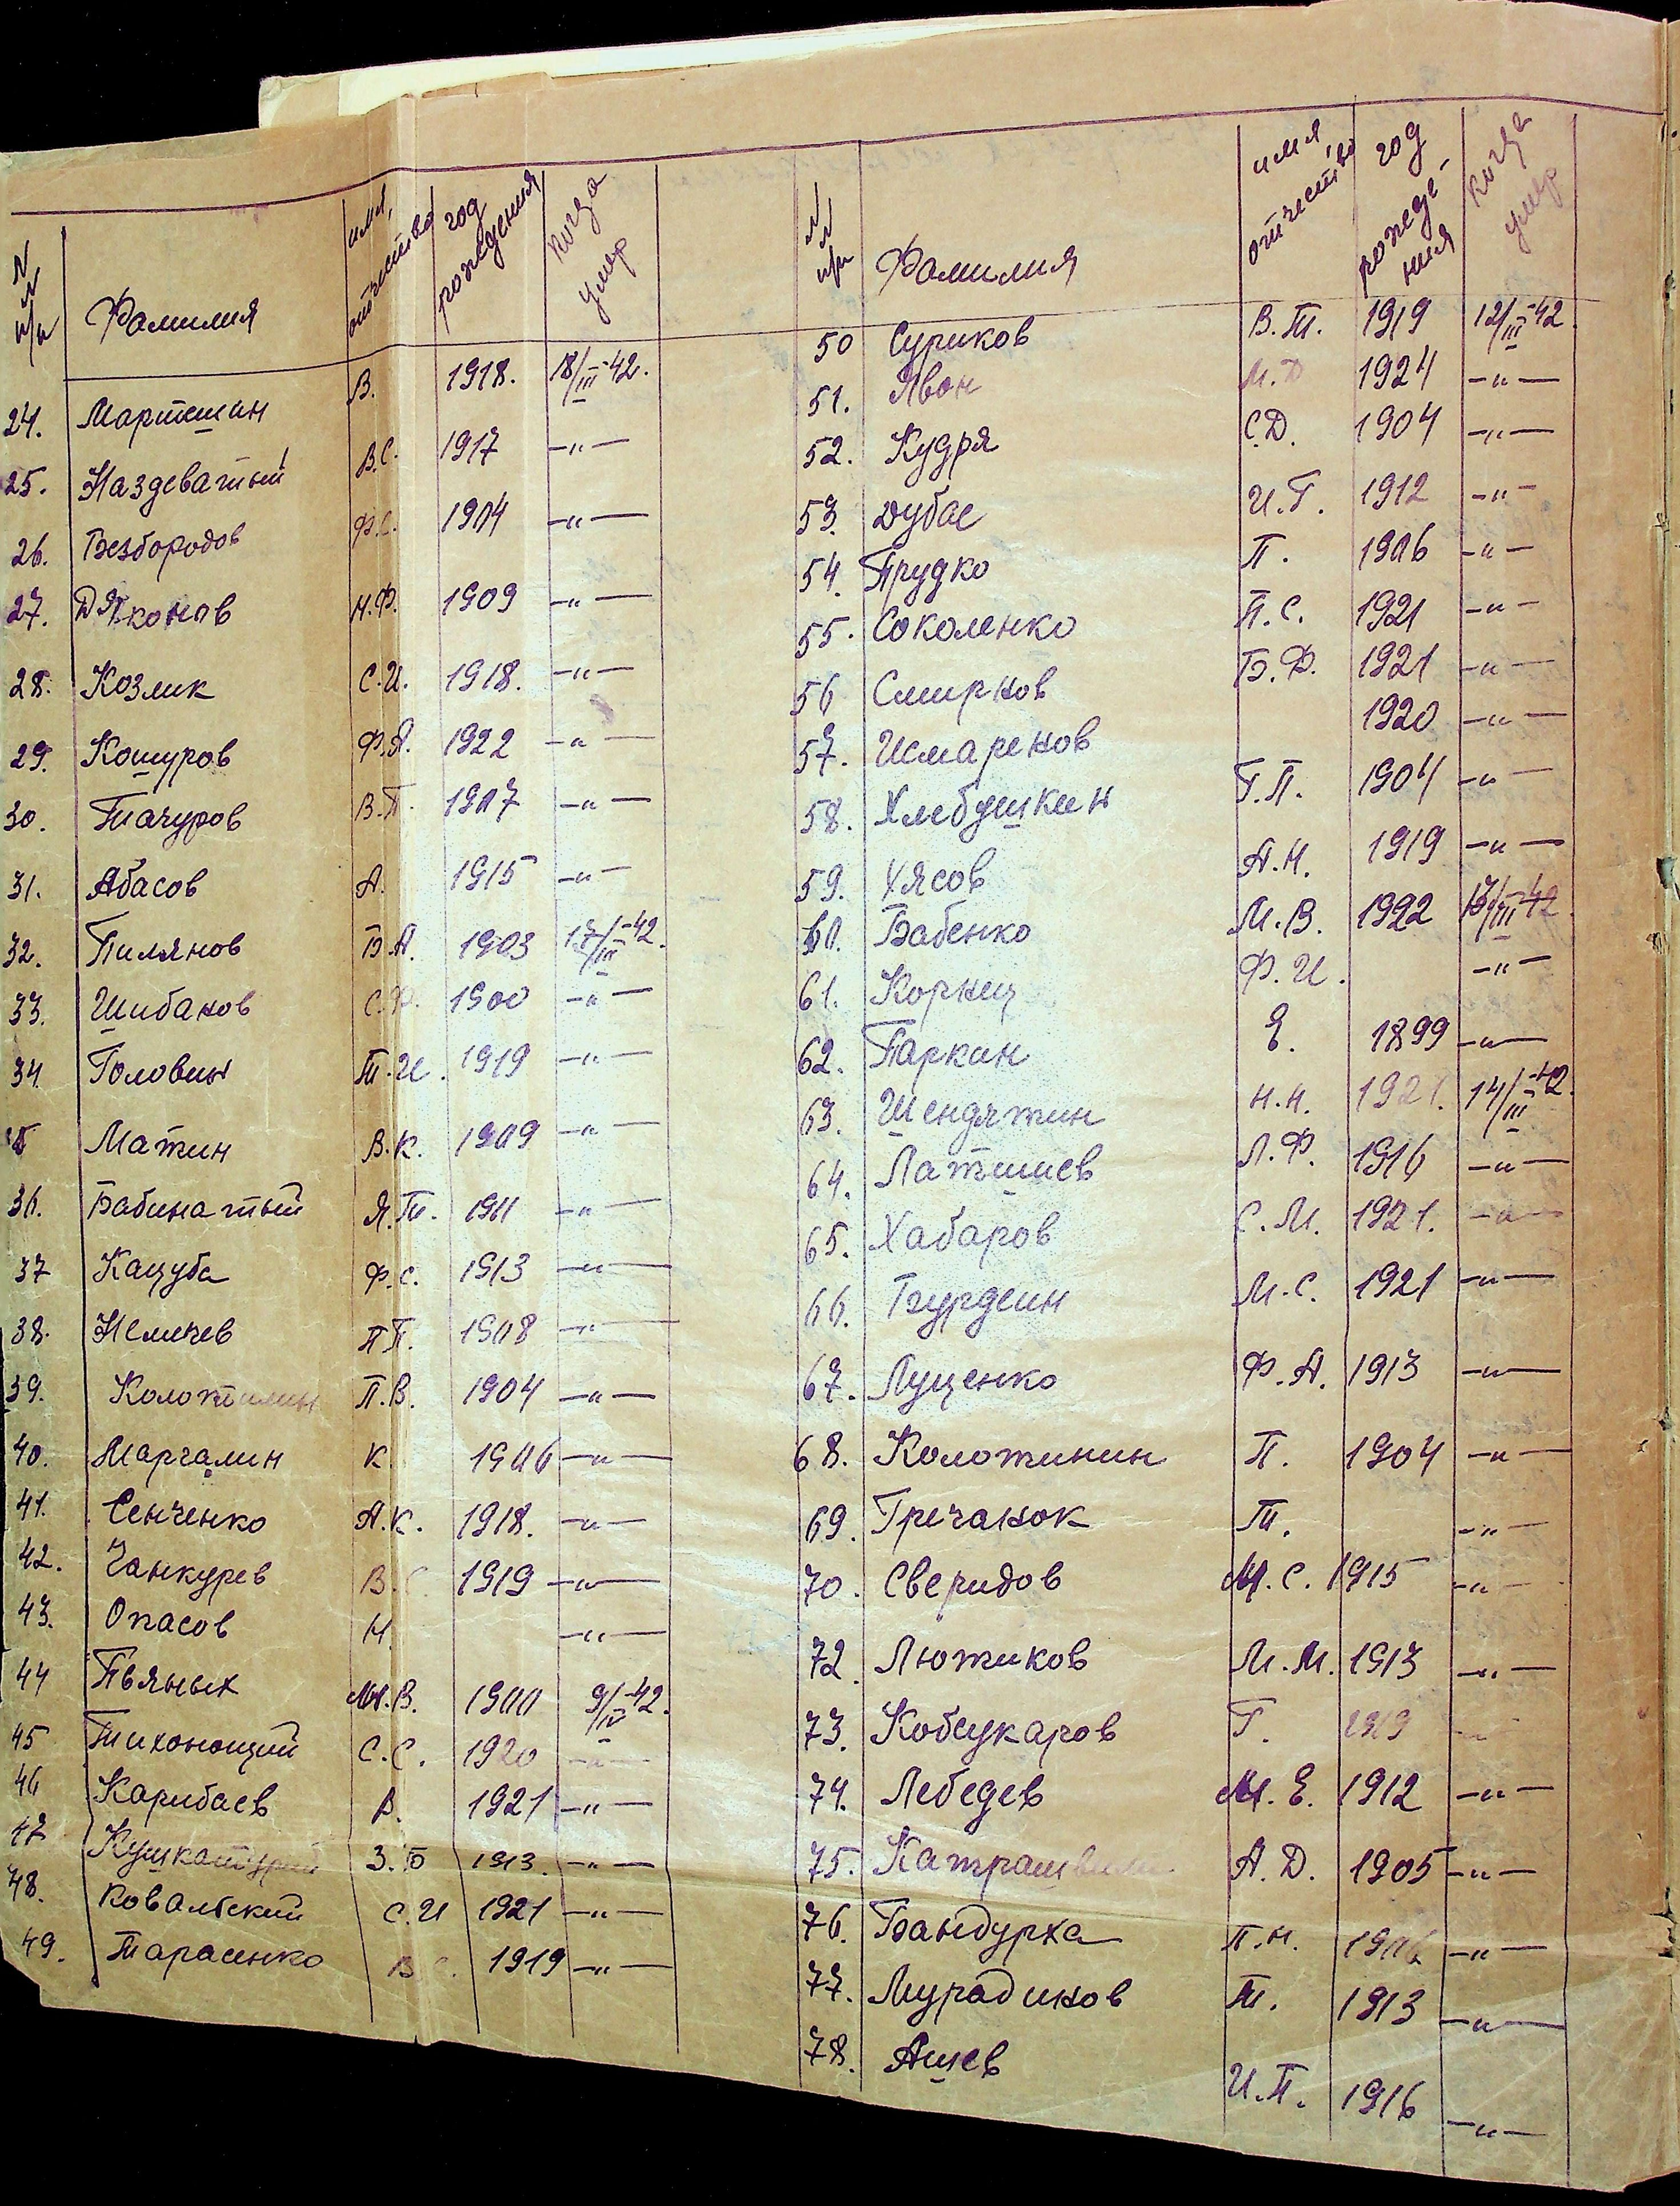 №№ п/п Фамилия имя, отчество год рождения когда умер
24. Мартешин В. 1918. 18/III-42.
25. Наздеватый В.С. 1917 —"—
26. Безбородов Ф.С. 1904 —"—
27. Дяконов Н.Ф. 1909 —"—
28. Козлик С.И. 1918. —"—
29. Кошуров Ф.Я. 1922 —"—
30. Тачуров В.П. 1907 —"—
31. Абасов А. 1915 —"—
32. Пилянов Б.А. 1903 17/III-42.
33. Шибанов С.Ф. 1900 —"—
34. Головин Т.И. 1919 —"—
Матин В.К. 1909 —"—
36. Бабинатый Я.Т. 1911 —"—
37 Кацуба Ф.С. 1913 —"—
38. Немичев П.П. 1908 —"—
39. П.В. 1904 —"—
40. Маргалин К. 1906 —"—
41. Сенченко А.К. 1918. —"—
42. Чанкурев В.С. 1919 —"—
43. Опасов Н. —"—
44 Пьяных М.В. 1900 9/IV-42.
45 Тихонощий С.С. 1920 —"—
46 Карибаев В. 1921 —"—
47 З.Б 1913. —"—
48. Ковальский С.И 1921 —"—
49. Тарасенко В.С. 1919 —"—
№№ п/п Фамилия имя, отчество год рождения когда умер
50 Суриков В.Т. 1919 12/III-42.
51. Явон М.Д 1924 —"—
52. Кудря С.Д. 1904 —"—
53. Дубас И.Г. 1912 —"—
54. Прудко П. 1906 —"—
55. Соколенко П.С. 1921 —"—
56 Смирнов Б.Ф. 1921 —"—
57. Исмаренов 1920 —"—
58. Хлебушкин Г.П. 1904 —"—
59. Хясов А.Н. 1919 —"—
60. Бабенко М.В. 1922 13/III-42.
61. Корнец Ф.И. —"—
62. Паркин Е. 1899 —"—
63. Шендятин Н.Н. 1921. 14/III-42.
64. Латышев Л.Ф. 1916 —"—
65. Хабаров С.М. 1921. —"—
66. Бурдеин М.С. 1921 —"—
67. Луценко Ф.А. 1913 —"—
68. Коложинин П. 1904 —"—
69. Гречанок Т. —"—
70. Сверидов М.С. 1915 —"—
72 Лютиков М.М. 1913 —"—
73. Кобсукаров Г. 1919 —"—
74. Лебедев М.Е. 1912 —"—
75. А.Д. 1905 —"—
76. Бандурка П.Н. 1906 —"—
77. Мурадинов Т. 1913 —"—
78. Ашев И.П. 1916 —"—